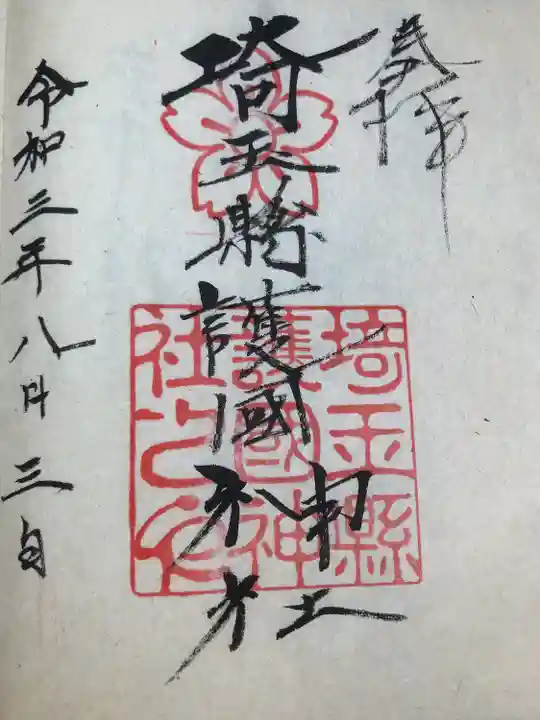 奉拝
埼玉縣護國神社
埼玉縣
護國神
社之印
令和三年八月三日